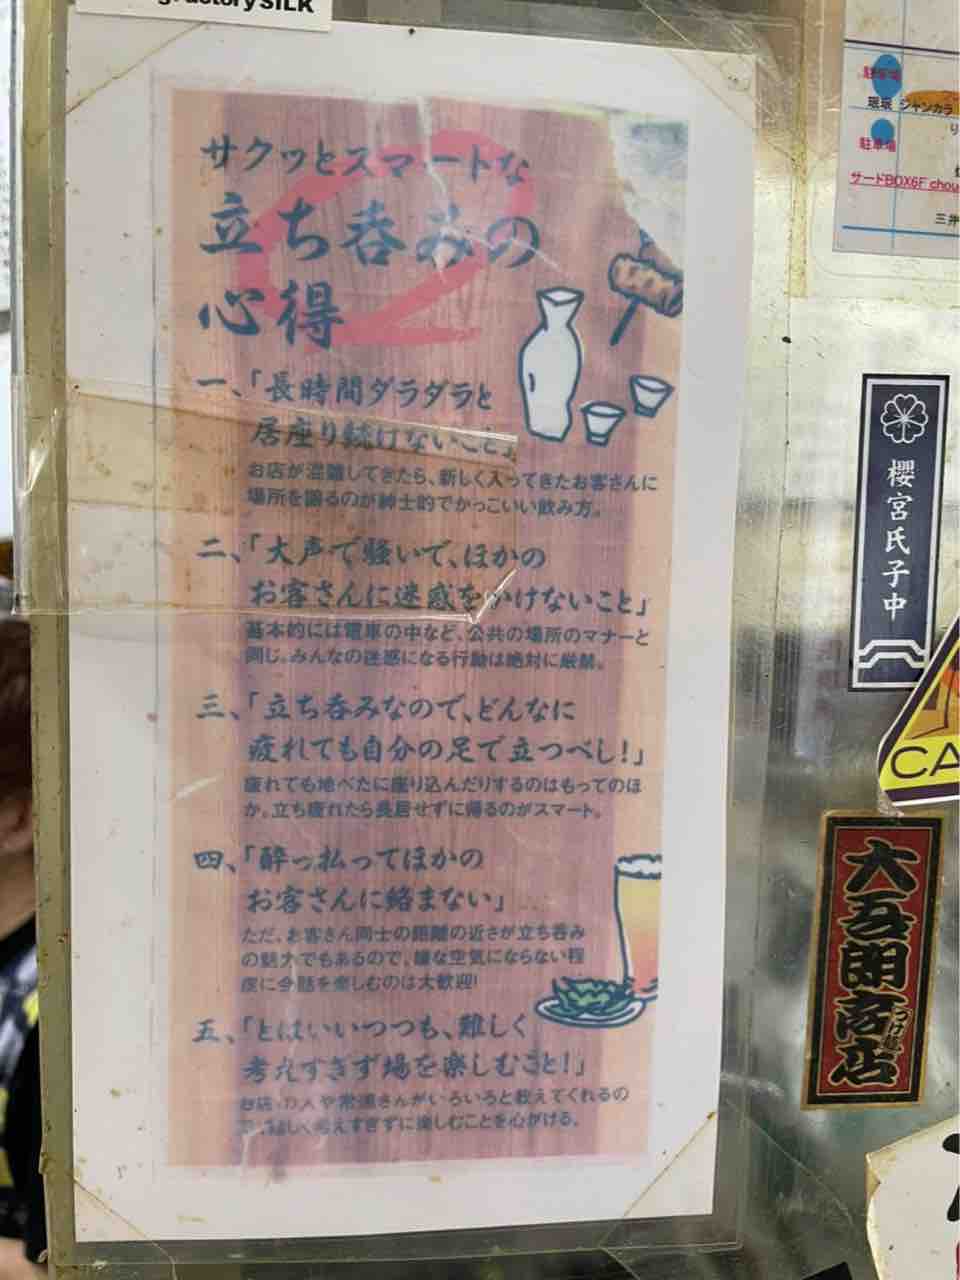 Factory SILK
サクッとスマートな
立ち呑みの
心得
一、「長時間ダラダラと
居座り続けないこと」
お店が混雑してきたら、新しく入ってきたお客さんに
場所を譲るのが紳士的でかっこいい飲み方。
二、「大声で騒いで、ほかの
お客さんに迷惑をかけないこと」
基本的には電車の中など、公共の場所のマナーと
同じ。みんなの迷惑になる行動は絶対に厳禁。
三、「立ち呑みなので、どんなに
疲れても自分の足で立つべし!」
疲れても地べたに座り込んだりするのはもってのほ
か。立ち疲れたら長居せずに帰るのがスマート。
四、「酔っ払ってほかの
お客さんに絡まない」
ただ、お客さん同士の距離の近さが立ち呑み
の魅力でもあるので、嫌な空気にならない程
度に会話を楽しむのは大歓迎!
五、「とはいいつつも、難しく
考えすぎず場を楽しむこと!」
お店の人や常連さんがいろいろと教えてくれるの
で、難しく考えすぎずに楽しむことを心がける。
駐車場
珉珉 ジャンカラ
駐車場
サードBOX6F chou
三井
櫻宮氏子中
CA
大吾朗商店
つけ麺